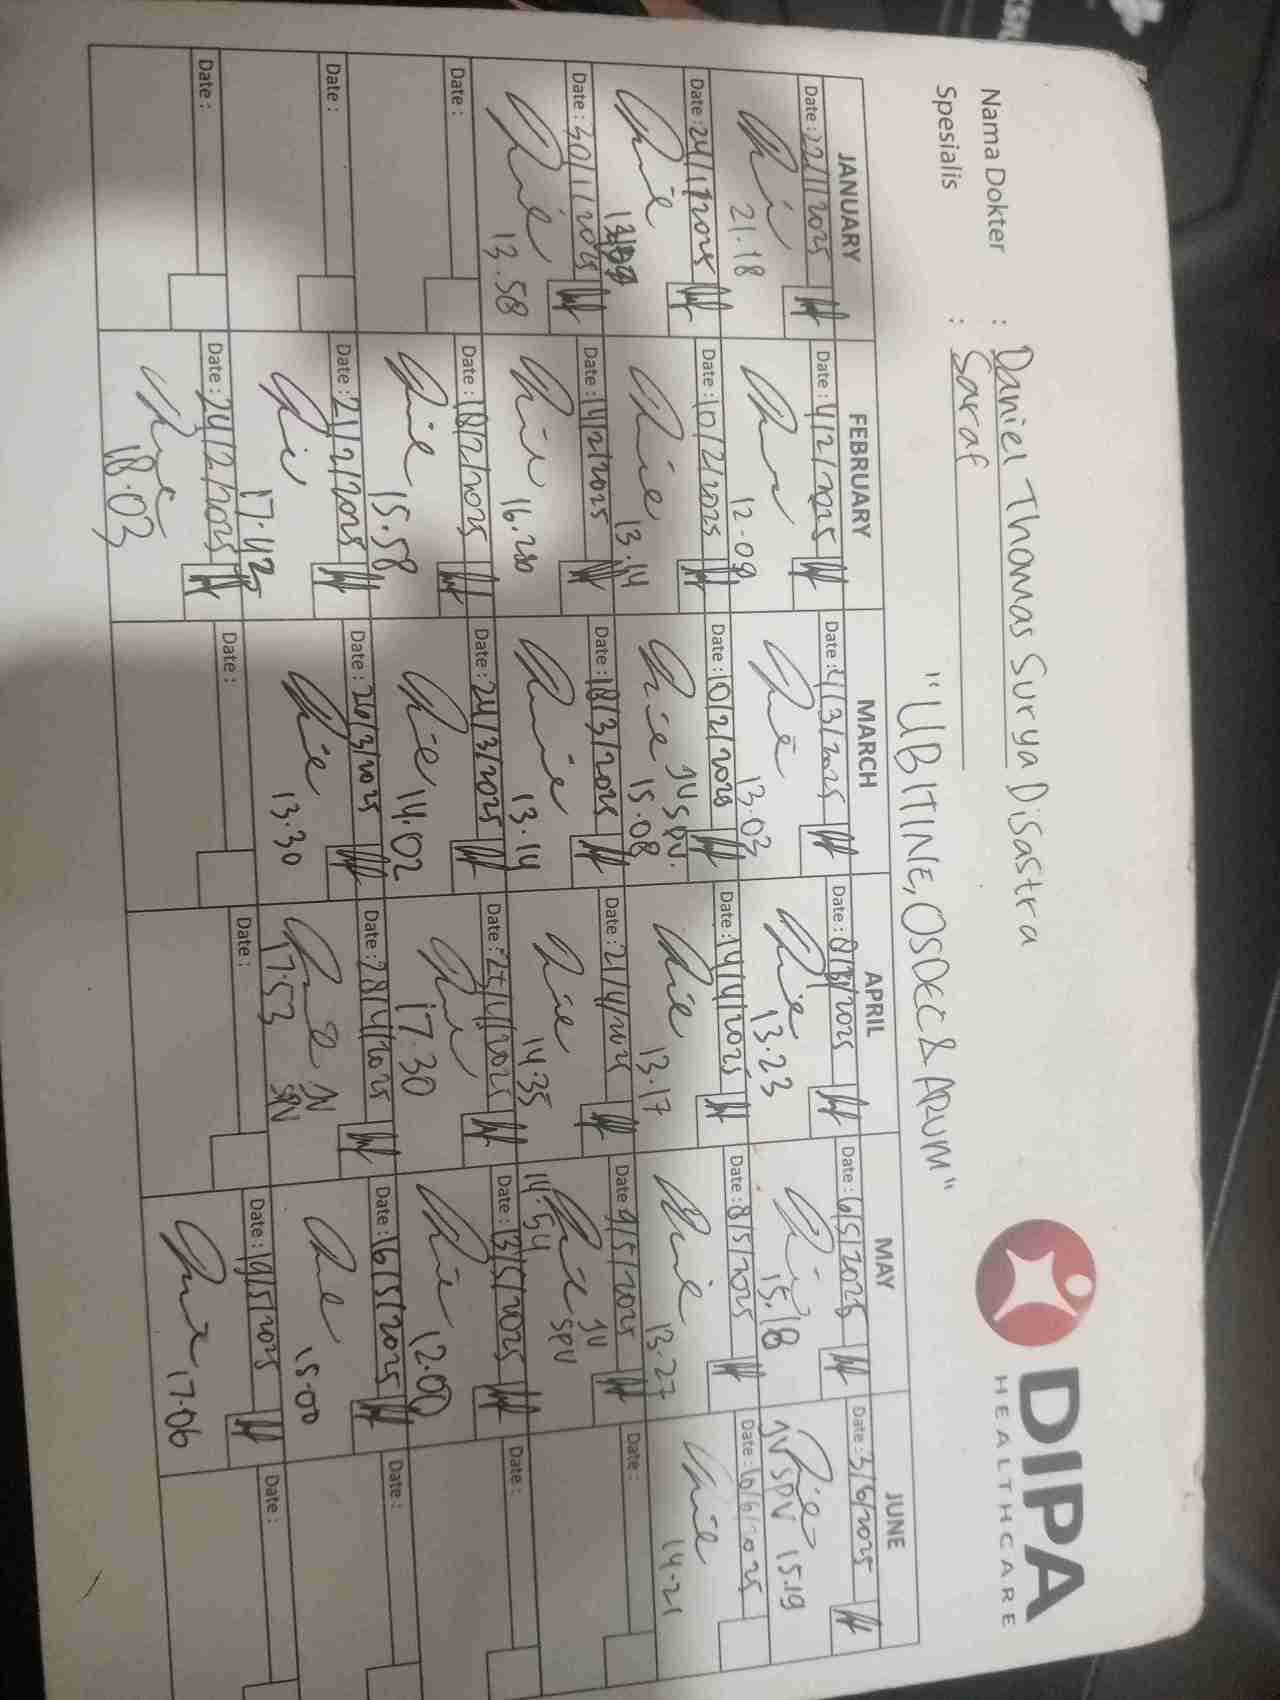 DIPA
HEALTHCARE
Nama Dokter : Daniel Thomas Surya Disastra
Spesialis : Saraf
"UBITINE, OSDEC & AZUM"
JANUARY
Date : 22/1/2025
21.18
Date : 24/1/2025
Date : 30/1/2025
13.58
Date :
Date :
Date :
FEBRUARY
Date : 4/2/2025
12.09
Date : 10/2/2025
13.14
Date : 14/2/2025
Date : 18/2/2025
15.58
Date : 21/2/2025
17.42
Date : 24/2/2025
18.03
MARCH
Date : 4/3/2025
13.03
Date : 10/2/2020
JV SPV.
15.08
Date : 18/3/2025
13.14
Date : 24/3/2025
14.02
Date : 26/3/2025
13.30
Date :
APRIL
Date : 8/3/2025
13.23
Date : 14/4/2025
13.17
Date : 21/4/2025
14.35
Date : 25/4/2025
17.30
Date : 28/4/2025
17.53 JV SPV
Date :
MAY
Date : 6/5/2025
15.18
Date : 8/5/2025
13.27
Date : 9/5/2025
JV SPV
14.54
Date : 13/5/2025
12.00
Date : 16/5/2025
15.00
Date : 19/5/2025
17.06
JUNE
Date : 3/6/2025
JV SPV 15.19
Date : 10/6/2025
14.21
Date :
Date :
Date :
Date :